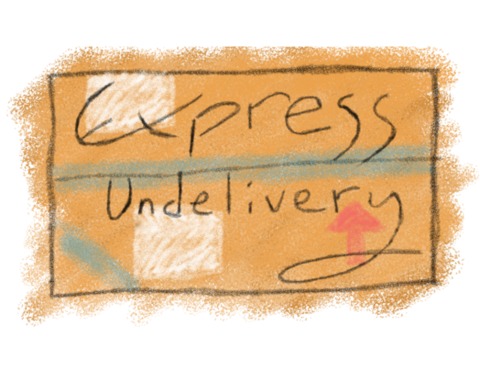 Express
Undelivery